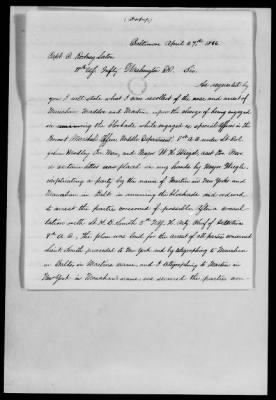 (Copy)
Baltimore April 27th 1866
Capt. A. Rodney
11th U.S. Infty Washington D.C. Sir
As requested by
you I will state what I can recollect of the case and arrest of
Monahan Madden and Martin, upon the charge of being engaged
in running the blockade while engaged as special officer in the
Provost Marshal Office Middle Department, 8th A.C. under Lt Col
John Woolley Pro. Mar., and Major H. Z.
certain letters were placed in my hands by Major
implicating a party by the name of Martin in New York and
Monahan in Balto in running the blockade and ordered
to arrest the parties concerned if possible. After a consul
tation with Lt. H. B. Smith 5th N.Y. H. Arty Chief of Detectives
8th A.C., the plan was laid for the arrest of all parties concerned
Lieut. Smith proceeded to New York and by telegraphing to Monahan
in Balto in Martins name, and I telegraphing to Martin in
New York in Monahan's name, we secured the parties